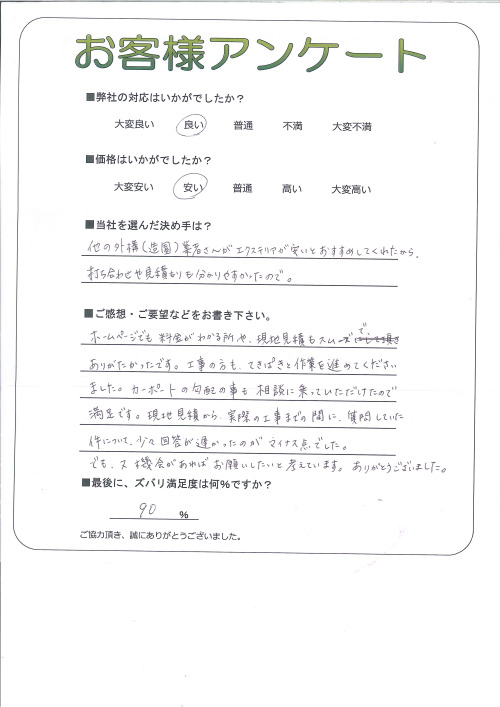 お客様アンケート
■弊社の対応はいかがでしたか?
大変良い 良い 普通 不満 大変不満
■価格はいかがでしたか?
大変安い 安い 普通 高い 大変高い
■当社を選んだ決め手は?
他の外構(造園)業者さんがエクステリアが安いとおすすめしてくれたから、
打ち合わせや見積もりも分かりやすかったので。
■ご感想・ご要望などをお書き下さい。
ホームページでも料金がわかる所や、現地見積もスムーズで、
ありがたかったです。工事の方も、てきぱきと作業を進めてください
ました。カーポートの勾配の事も相談に乗っていただけたので
満足です。現地見積から、実際の工事までの間に、質問していた
件について、少々回答が遅かったのがマイナス点でした。
でも、又機会があればお願いしたいと考えています。ありがとうございました。
■最後に、ズバリ満足度は何%ですか?
90 %
ご協力頂き、誠にありがとうございました。